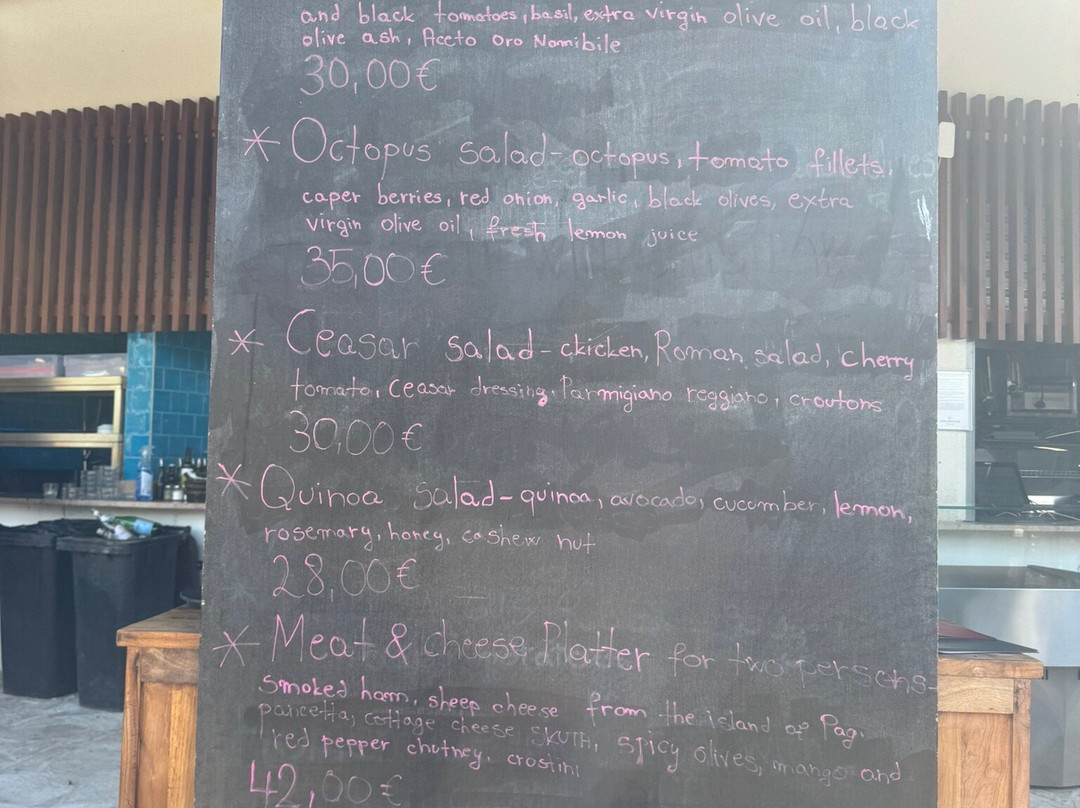 and black tomatoes, basil, extra virgin olive oil, black
olive ash, Aceto Oro Nomibile
30,00€
* Octopus salad - octopus, tomato fillets,
caper berries, red onion, garlic, black olives, extra
virgin olive oil, fresh lemon juice
35,00€
* Ceasar salad - ckicken, Roman salad, cherry
tomato, ceasar dressing, Parmigiano reggiano, croutons
30,00€
* Quinoa salad - quinoa, avocado, cucumber, lemon,
rosemary, honey, cashew nut
28,00€
* Meat & cheese Platter for two persons-
smoked ham, sheep cheese from the island of Pag,
pancetta, cottage cheese SKUTA, spicy olives, mango and
red pepper chutney, crostini
42,00€